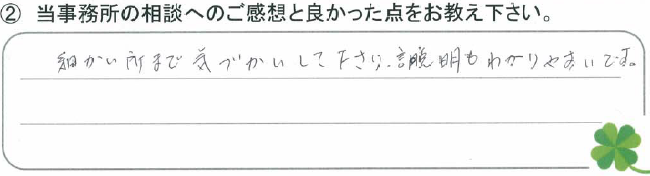 ② 当事務所の相談へのご感想と良かった点をお教え下さい。
細かい所まで気づかいして下さり、説明もわかりやすいです。